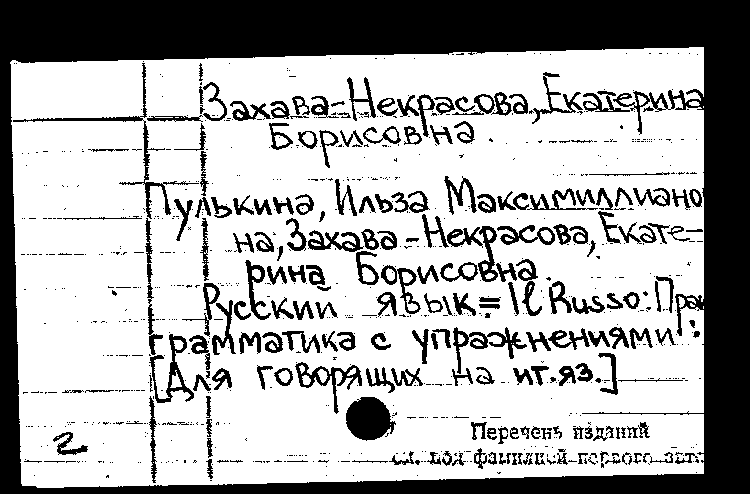 Захава-Некрасова, Екатерина
Борисовна.
Пулькина, Ильза Максимиллиано
на, Захава-Некрасова, Екате-
рина Борисовна.
Русский язык = Il Russo: Прак
грамматика с упражнениями :
[Для говорящих на ит.яз.]
2
Перечень изданий
см. под фамилией первого авто